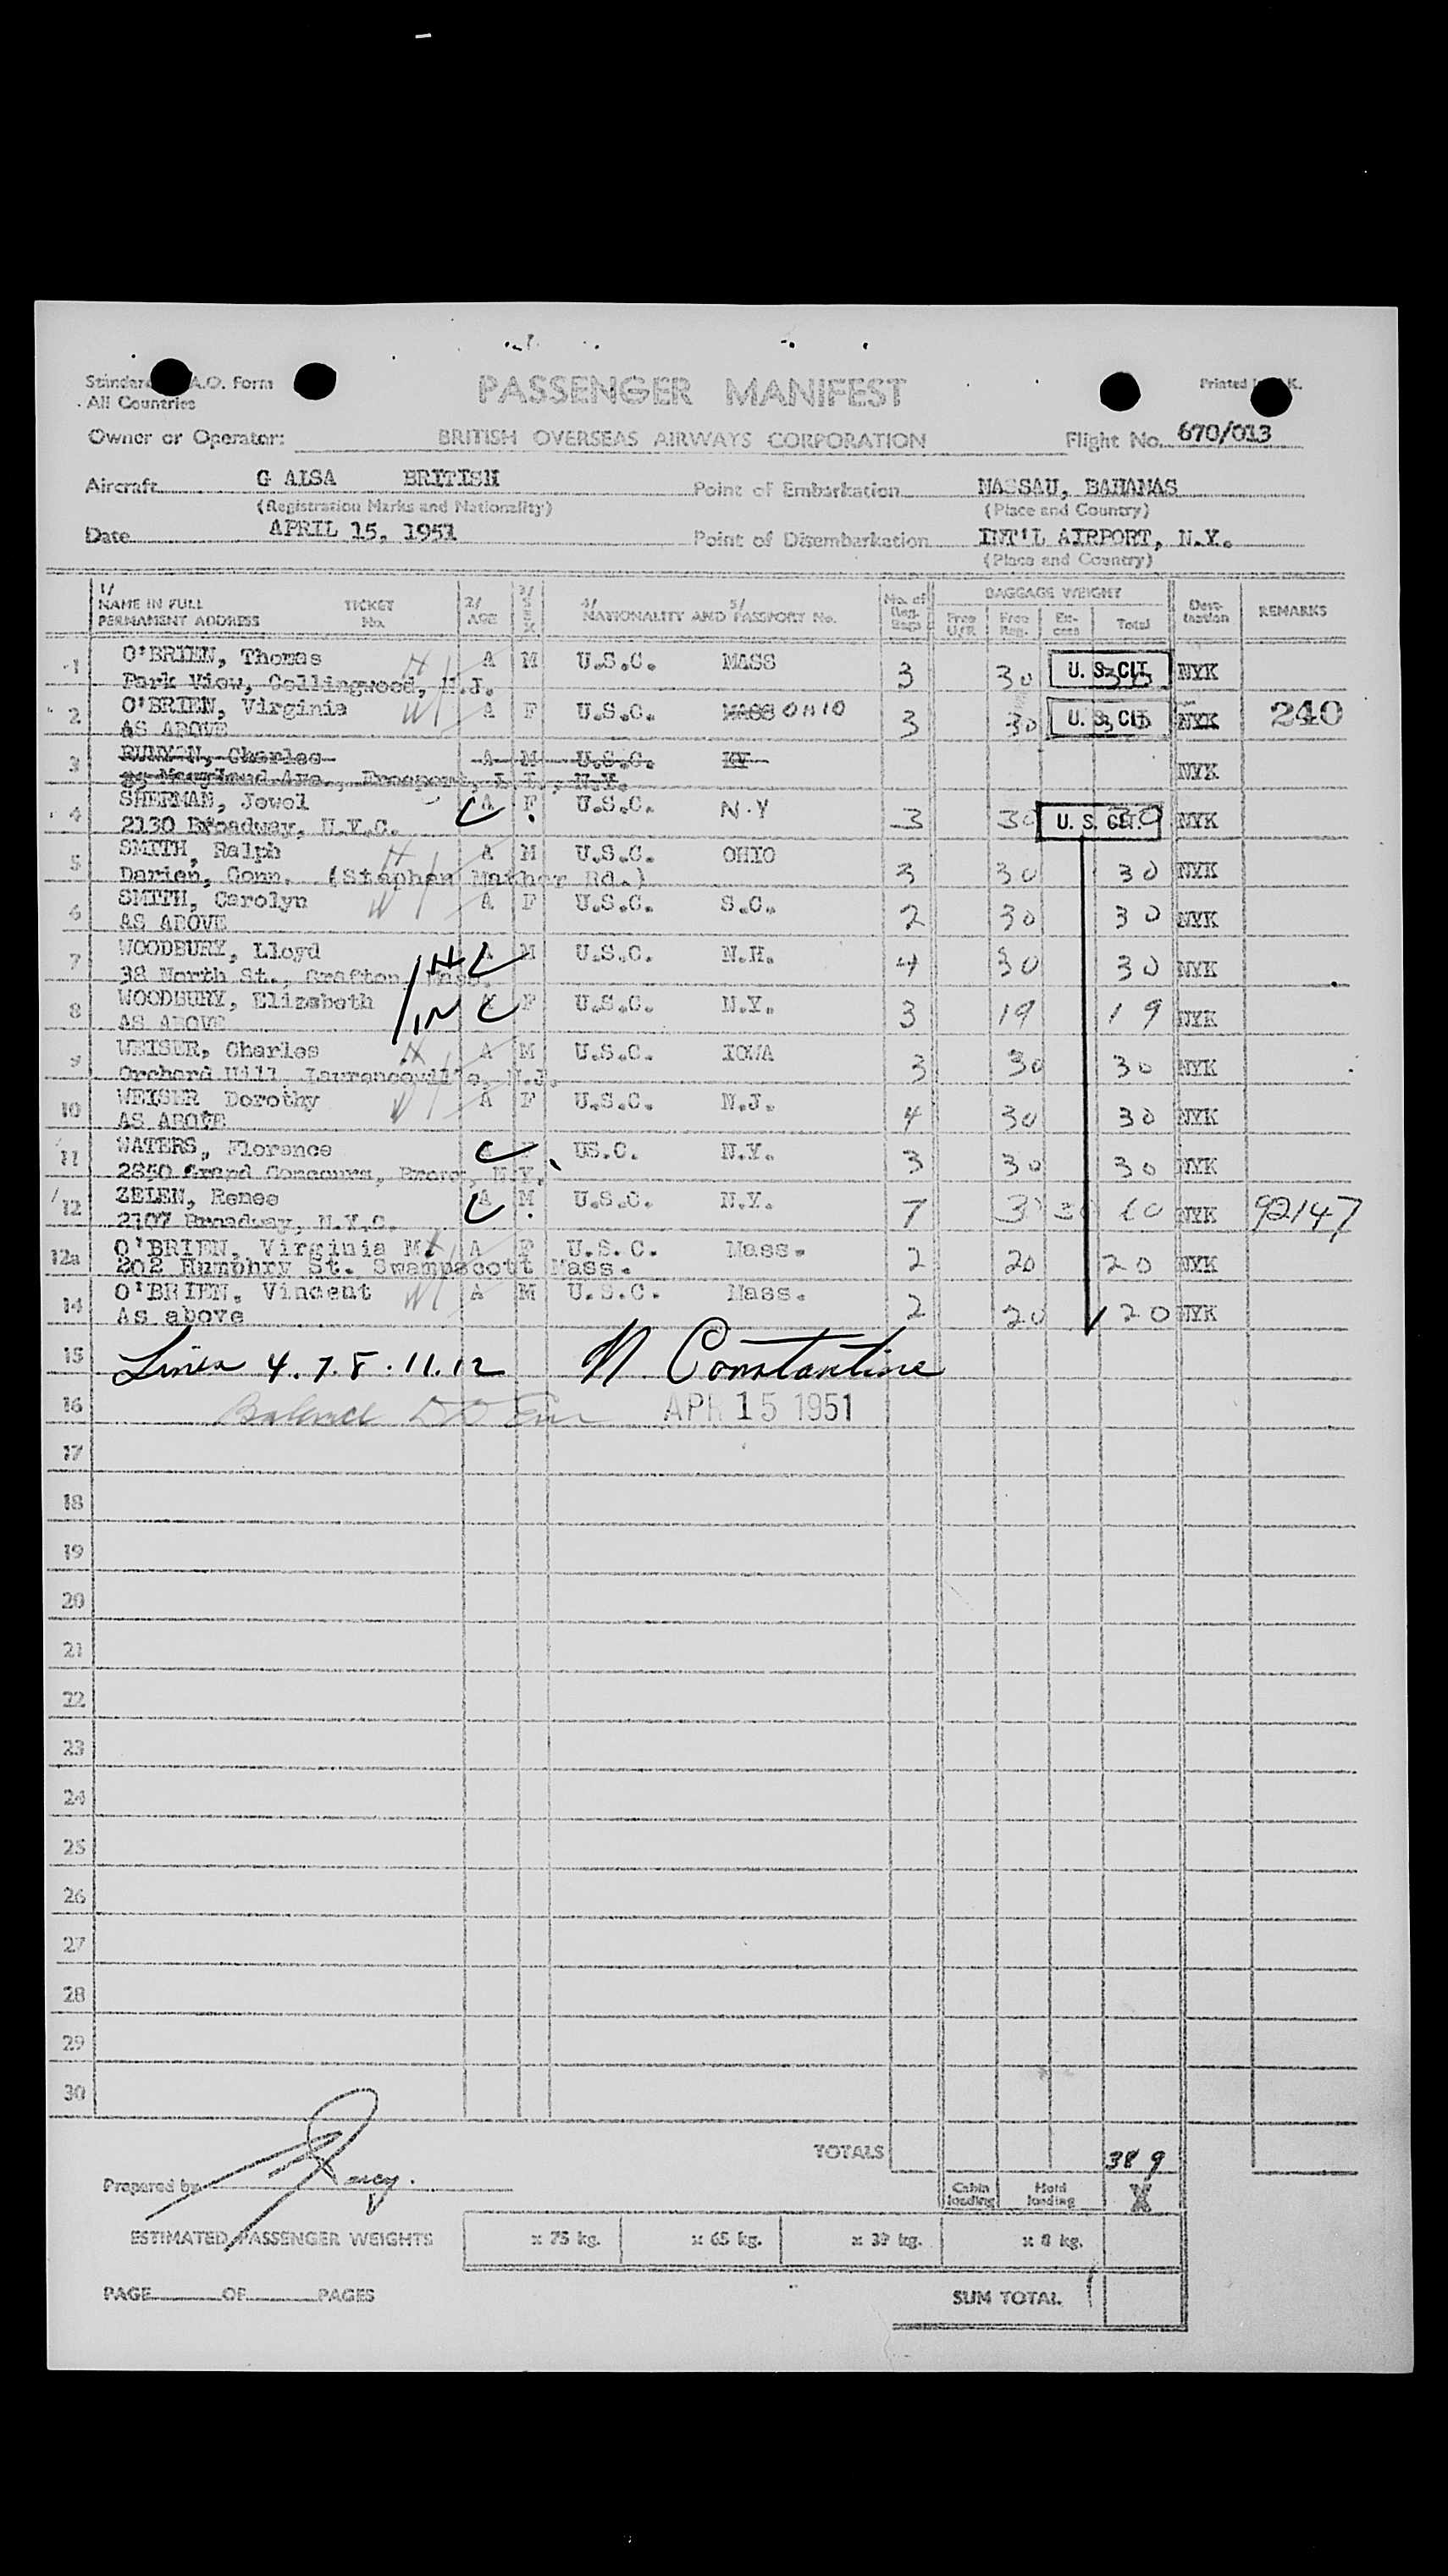 Standard A.O. Form
All Countries
PASSENGER MANIFEST
Printed K.
Owner or Operator: BRITISH OVERSEAS AIRWAYS CORPORATION Flight No. 670/013
Aircraft G AISA BRITISH Point of Embarkation NASSAU, BAHAMAS
(Registration Marks and Nationality) (Place and Country)
Date APRIL 15, 1951 Point of Disembarkation INT'L AIRPORT, N.Y.
(Place and Country)
1/ NAME IN FULL PERMANENT ADDRESS TICKET No. 2/ AGE 3/ SEX 4/ NATIONALITY AND 5/ PASSPORT No. No. of Reg. Bags BAGGAGE WEIGHT Free U/R Free Reg. Excess Total Destination REMARKS
1 O'BRIEN, Thomas A M U.S.C. MASS 3 30 U. S. CIT. NYK
Park View, Collingwood, N.J.
2 O'BRIEN, Virginia A F U.S.C. MASS OHIO 3 30 U. S. CIT. NYK 240
AS ABOVE
3 RUNYAN, Charles A M U.S.C. KY NYK
Maryland Ave., Freeport, L.I., N.Y.
4 SHERMAN, Jewel C A F U.S.C. N.Y 3 30 U. S. CIT. 30 NYK
2130 Broadway, N.Y.C.
5 SMITH, Ralph A M U.S.C. OHIO 3 30 30 NYK
Darien, Conn. (Stephen Mather Rd.)
6 SMITH, Carolyn A F U.S.C. S.C. 2 30 30 NYK
AS ABOVE
7 WOODBURY, Lloyd C M U.S.C. N.H. 4 30 30 NYK
38 North St., Grafton, Mass.
8 WOODBURY, Elizabeth C F U.S.C. N.Y. 3 19 19 NYK
AS ABOVE
9 WEISER, Charles A M U.S.C. IOWA 3 30 30 NYK
Orchard Hill, Lawrenceville, N.J.
10 WEISER Dorothy A F U.S.C. N.J. 4 30 30 NYK
AS ABOVE
11 WATERS, Florence C F US.C. N.Y. 3 30 30 NYK
2850 Grand Concours, Bronx, N.Y.
12 ZELEN, Renee C A M U.S.C. N.Y. 7 30 60 NYK 92147
2107 Broadway, N.Y.C.
12a O'BRIEN, Virginia M. A F U.S.C. Mass. 2 20 20 NYK
202 Humphry St. Swampscott Mass.
14 O'BRIEN, Vincent A M U.S.C. Mass. 2 20 20 NYK
As above
15 Lines 4.7.8.11.12 N Constantine
16 Balance APR 15 1951
17
18
19
20
21
22
23
24
25
26
27
28
29
30
TOTALS 389
Prepared by
Cabin loading Hold loading X
ESTIMATED PASSENGER WEIGHTS x 75 kg. x 65 kg. x 39 kg. x 8 kg.
PAGE OF PAGES SUM TOTAL